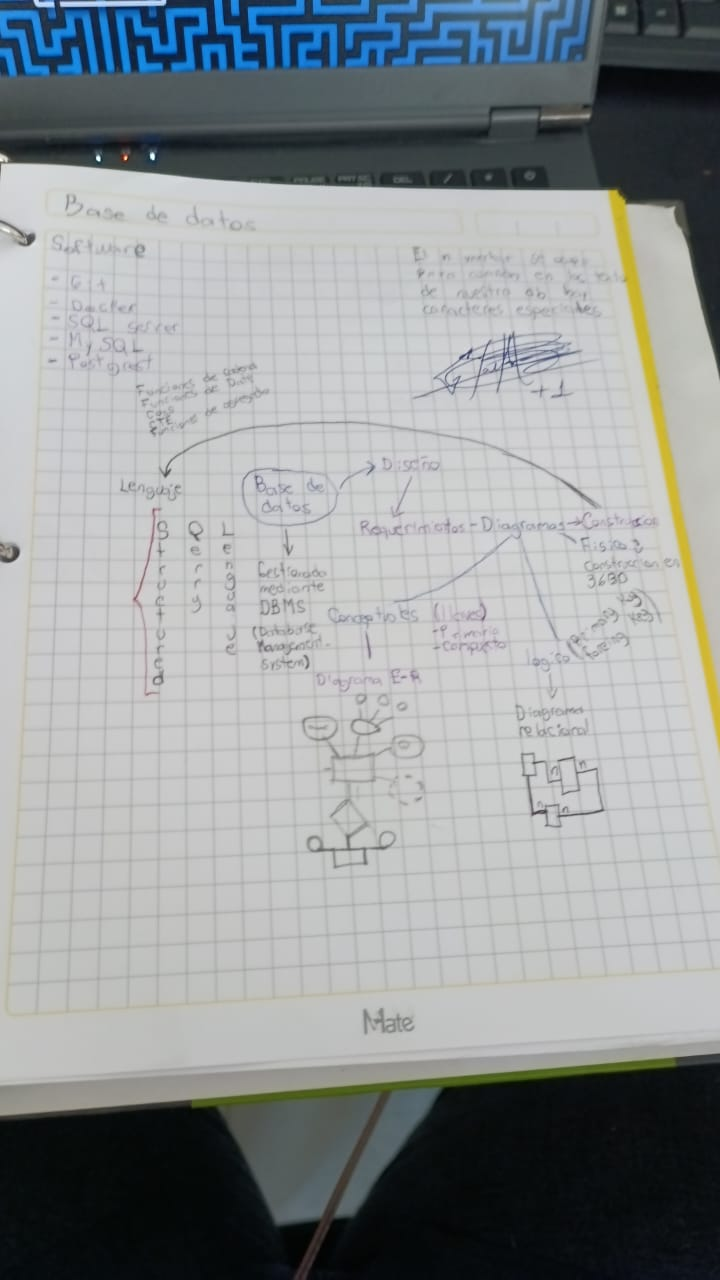 Base de datos
Software
- Git
- Docker
- SQL Server
- My SQL
- Postgrest
para en las
de nuestra hay
caracteres especiales
+1
Funciones de cadena
Funciones de Date
Caso
CTE
Funciones de agregado
Lenguaje
Structured
Query
Lenguaje
Base de
datos
Gestionado
mediante
DBMS
(Database
Management
System)
Diseño
Requerimientos - Diagramas → Construcion
Fisico:
Construccion en
Conceptuales (llaves)
- Primaria
- Compuesta
Diagrama E-R
logico (Primary key)
Foreing key
Diagrama
relacional
n
n
n
n
Mate
DEL